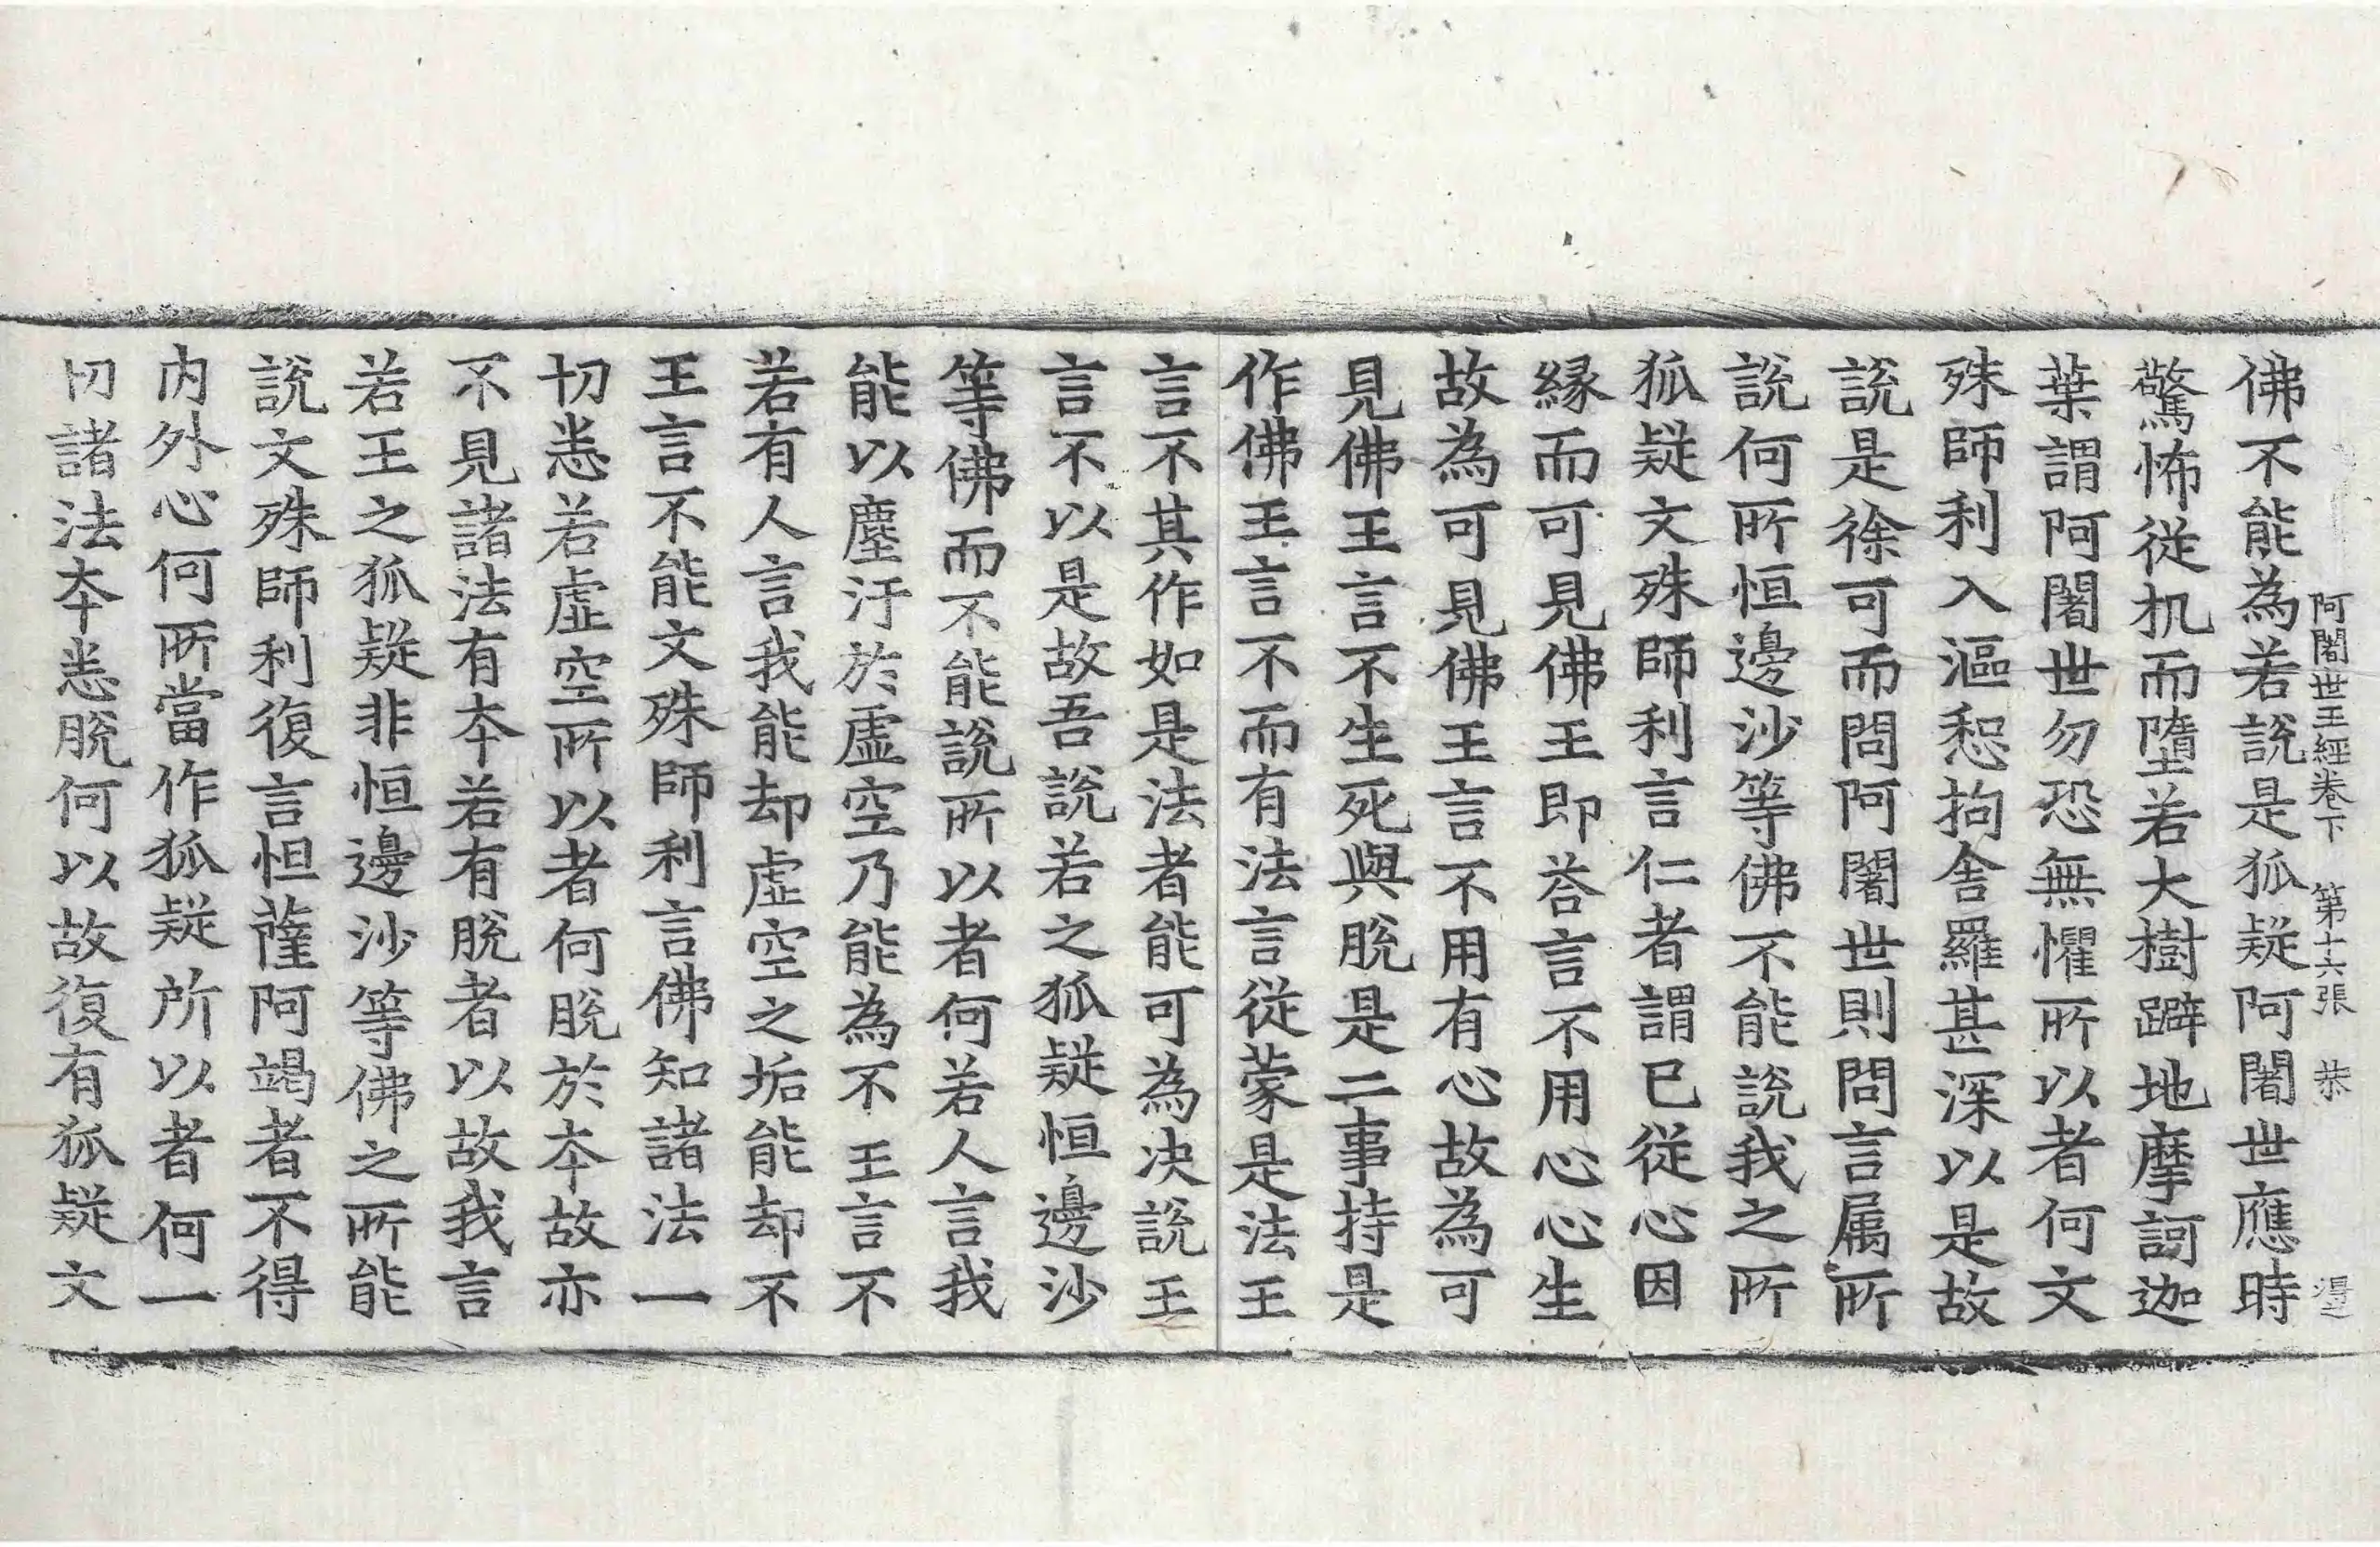 阿闍世王經卷下 第十六張 恭
佛不能為若說是狐疑阿闍世應時
驚怖從机而墮若大樹躃地摩訶迦
葉謂阿闍世勿恐無懼所以者何文
殊師利入漚惒拘舍羅甚深以是故
說是徐可而問阿闍世則問言属所
說何所恒邊沙等佛不能說我之所
狐疑文殊師利言仁者謂已從心因
緣而可見佛王即荅言不用心心生
故為可見佛王言不用有心故為可
見佛王言不生死與脫是二事持是
作佛王言不而有法言從蒙是法王
言不其作如是法者能可為决說王
言不以是故吾說若之狐疑恒邊沙
等佛而不能說所以者何若人言我
能以塵汙於虛空乃能為不王言不
若有人言我能却虛空之垢能却不
王言不能文殊師利言佛知諸法一
切悉若虛空所以者何脫於夲故亦
不見諸法有夲若有脫者以故我言
若王之狐疑非恒邊沙等佛之所能
說文殊師利復言怛薩阿竭者不得
內外心何所當作狐疑所以者何一
切諸法夲悉脫何以故復有狐疑文